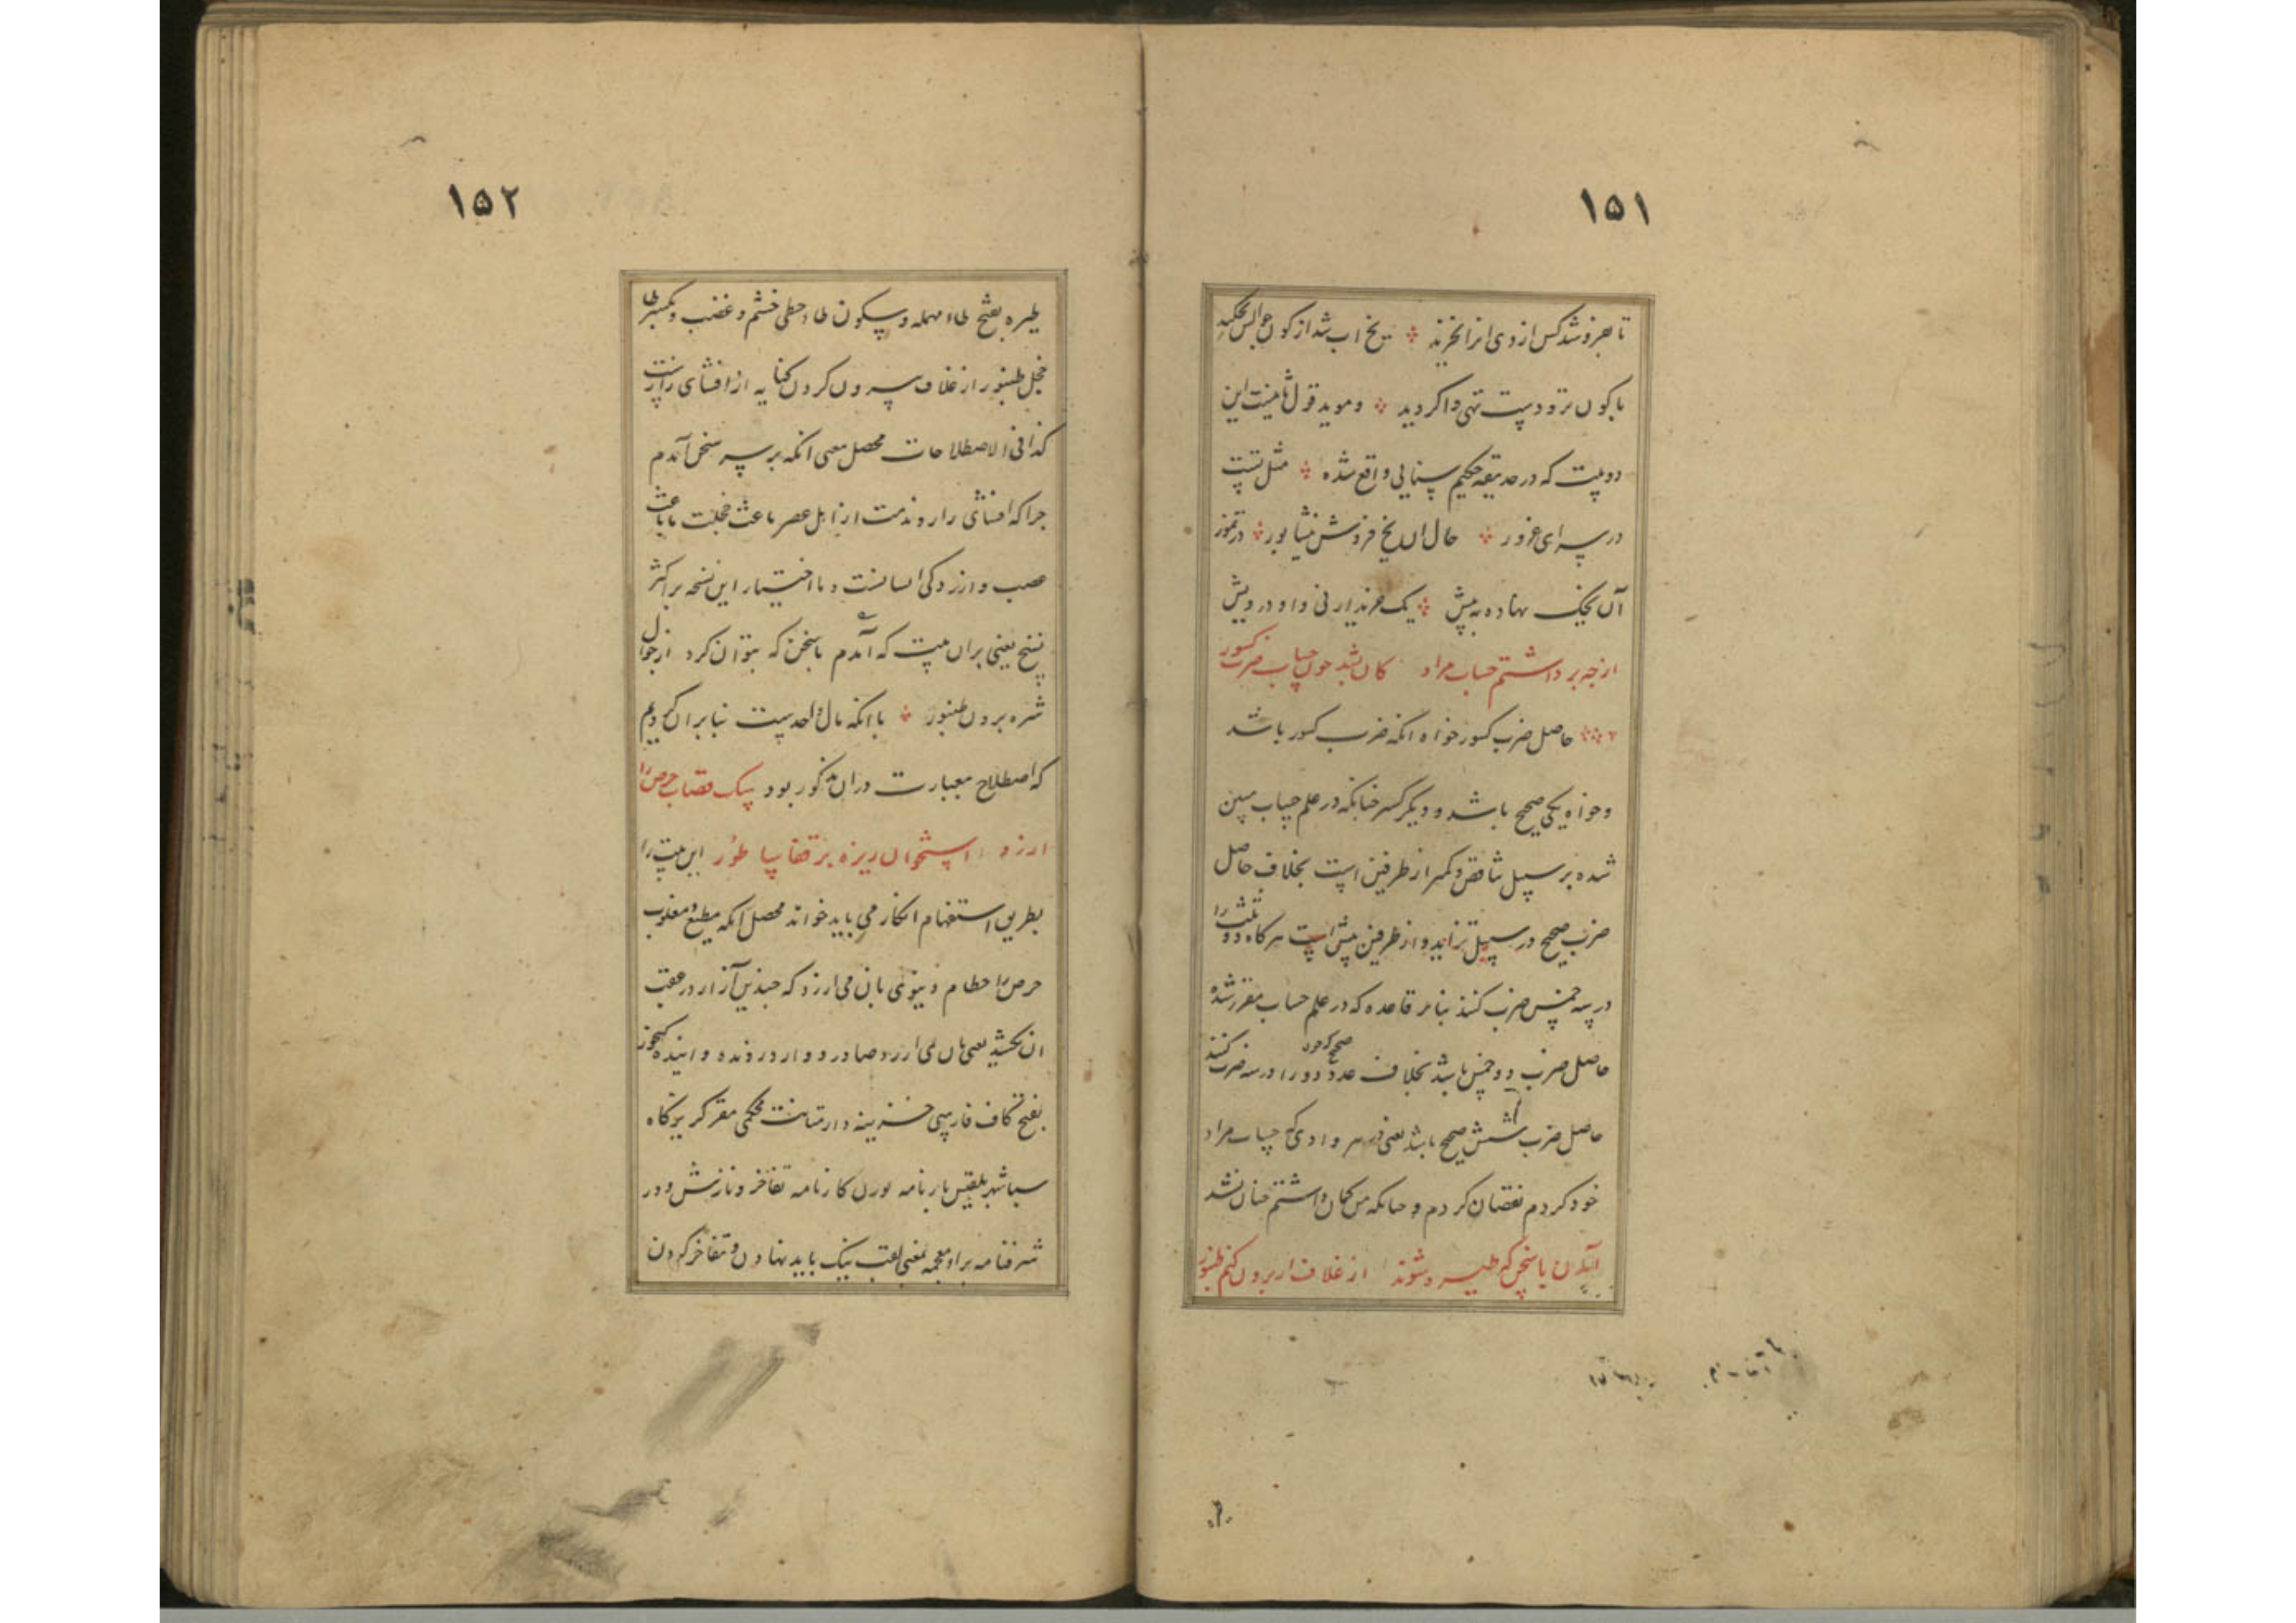 ۱۵۱
تا بفروشد کس از وی انرا نخرند یخ اب شد از کون
با کون تر و دست تهی وا کردید و موید قول این
دو بیت که در حدیقه حکیم سنایی واقع شده مثل تست
در سرای غرور حال ان یخ فروش نیشابور در تموز
آن یخک نهاده به پیش یک خریدار نی و او درویش
از چه برداشتم حساب مراد کان نشد چون حساب ضرب کسور
حاصل ضرب کسور خواه انکه ضرب کسور باشد
و خواه یکی صحیح باشد و دیگر کسر چنانکه در علم حساب مبین
شده بر سبیل تناقص و کمتر از طرفین است بخلاف حاصل
ضرب صحیح در سبیل تزاید و از طرفین بیش است هرکاه دو ثلث را
در سه خمس ضرب کنند بنابر قاعده که در علم حساب مقرر شده
حاصل ضرب دو خمس باشد بخلاف عدد صحیح که چون دو را در سه ضرب کنند
حاصل ضرب شش صحیح باشد یعنی در هر وادی که حساب مراد
خود کردم نقصان کردم و چنانکه من کمان داشتم چنان نشد
با سخن که طیره شوند از غلاف ار برون کنم طنبور
۱۵۲
طیره بفتح طاء مهمله و سکون طاء حطی خشم و غضب و بکسر طا
خجل طنبور از غلاف بیرون کردن کنایه از افشای راز است
کذا فی الاصطلاحات محصل معنی انکه بر سر سخن آمدم
چرا که افشای راز و مذمت از اهل عصر باعث خجلت یا باعث
غضب و ازردکی ایشانست و با اختیار این نسخه بر اکثر
نسخ یعنی بران بیت که آمدم با سخن که بتوان کرد از جوال
شره برون طنبور با انکه مال واحد است بنا بر ان کردیم
که اصطلاح بعبارت دران مذکور بود سک قصاب حرص را
ارزد استخوان ریزه بر قفا ساطور این بیت را
بطریق استفهام انکار می باید خواند محصل انکه مطیع و مغلوب
حرص را حطام دنیوی بان می ارزد که چندین آزار در عقب
ان بکشد یعنی بان نمی ارزد صادر و وارد رونده و اینده کنجور
بفتح کاف فارسی خزینه دار متانت محکمی مقر کریزکاه
سبا شهر بلقیس بارنامه بوزن کارنامه تفاخر و نازش و در
شرفنامه براء معجمه بمعنی لقب نیک باید نهادن و تفاخر کردن